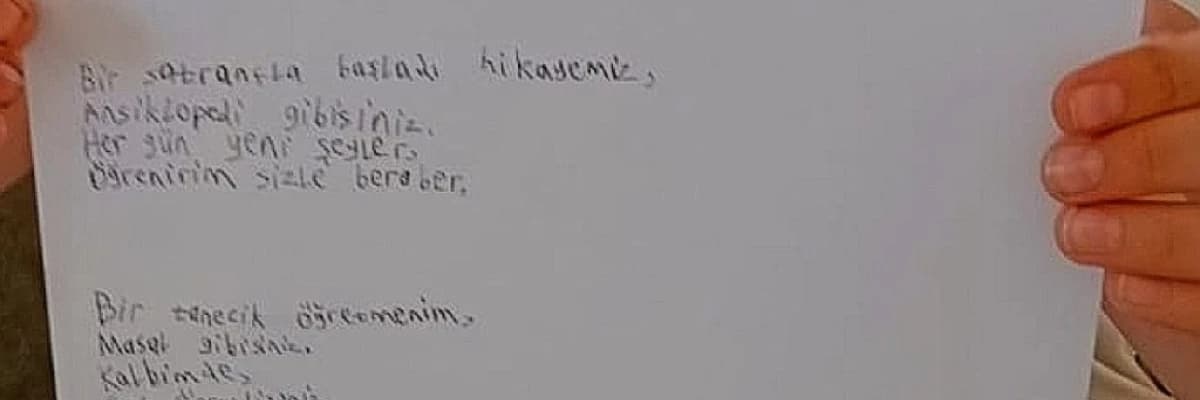 Bir satrançla başladı hikayemiz,
Ansiklopedi gibisiniz.
Her gün yeni şeyler,
Öğrenirim sizle beraber.
Bir tanecik öğretmenim,
Masal gibisiniz.
Kalbimde,